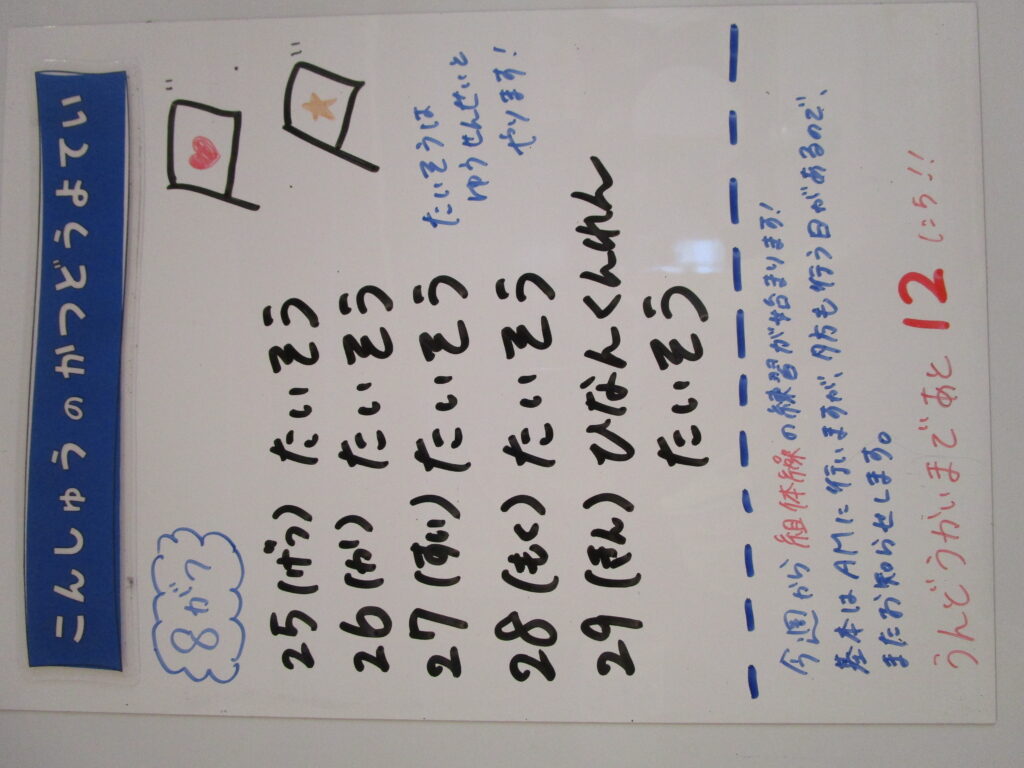 こんしゅうのかつどうよてい
8がつ
25(げつ) たいそう
26(か) たいそう
27(すい) たいそう
たいそうは
ゆうせんせいと
やります!
28(もく) たいそう
29(きん) ひなんくんれん
たいそう
今週から組体操の練習が始まります!
基本はAMに行いますが、夕方も行う日があるので、
またお知らせします。
うんどうかいまであと12にち!!